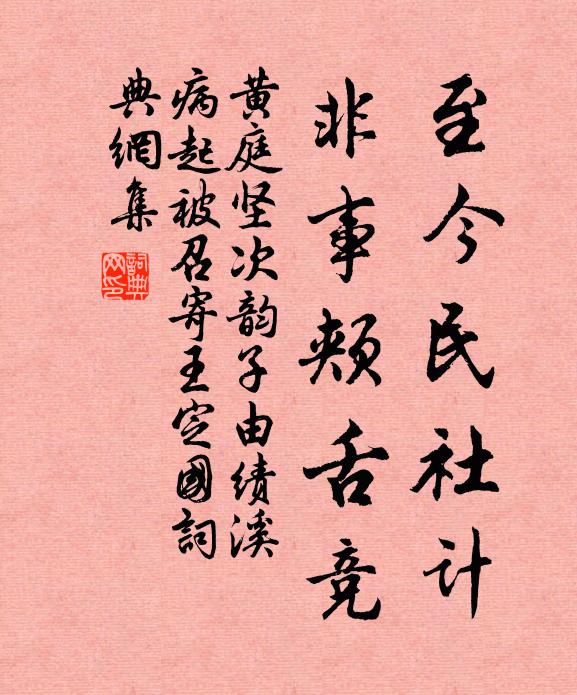 至今民社计
非事颊舌竞
黄庭坚次韵子由绩溪
病起被召寄王定國詞
典網集
詞典網印